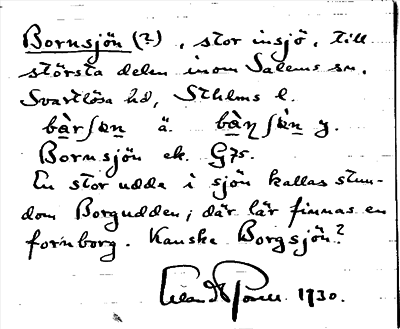 Bornsjön (?), stor insjö, till
största delen inom Salems sn,
Svartlösa hd, Sthlms l.
bàrſɛn ä. bàɳſɛn y.
Bornsjön ek. G75.
En stor udde i sjön kallas stun-
dom Borgudden; där lär finnas en
fornborg. Kanske Borgsjön?
1930.